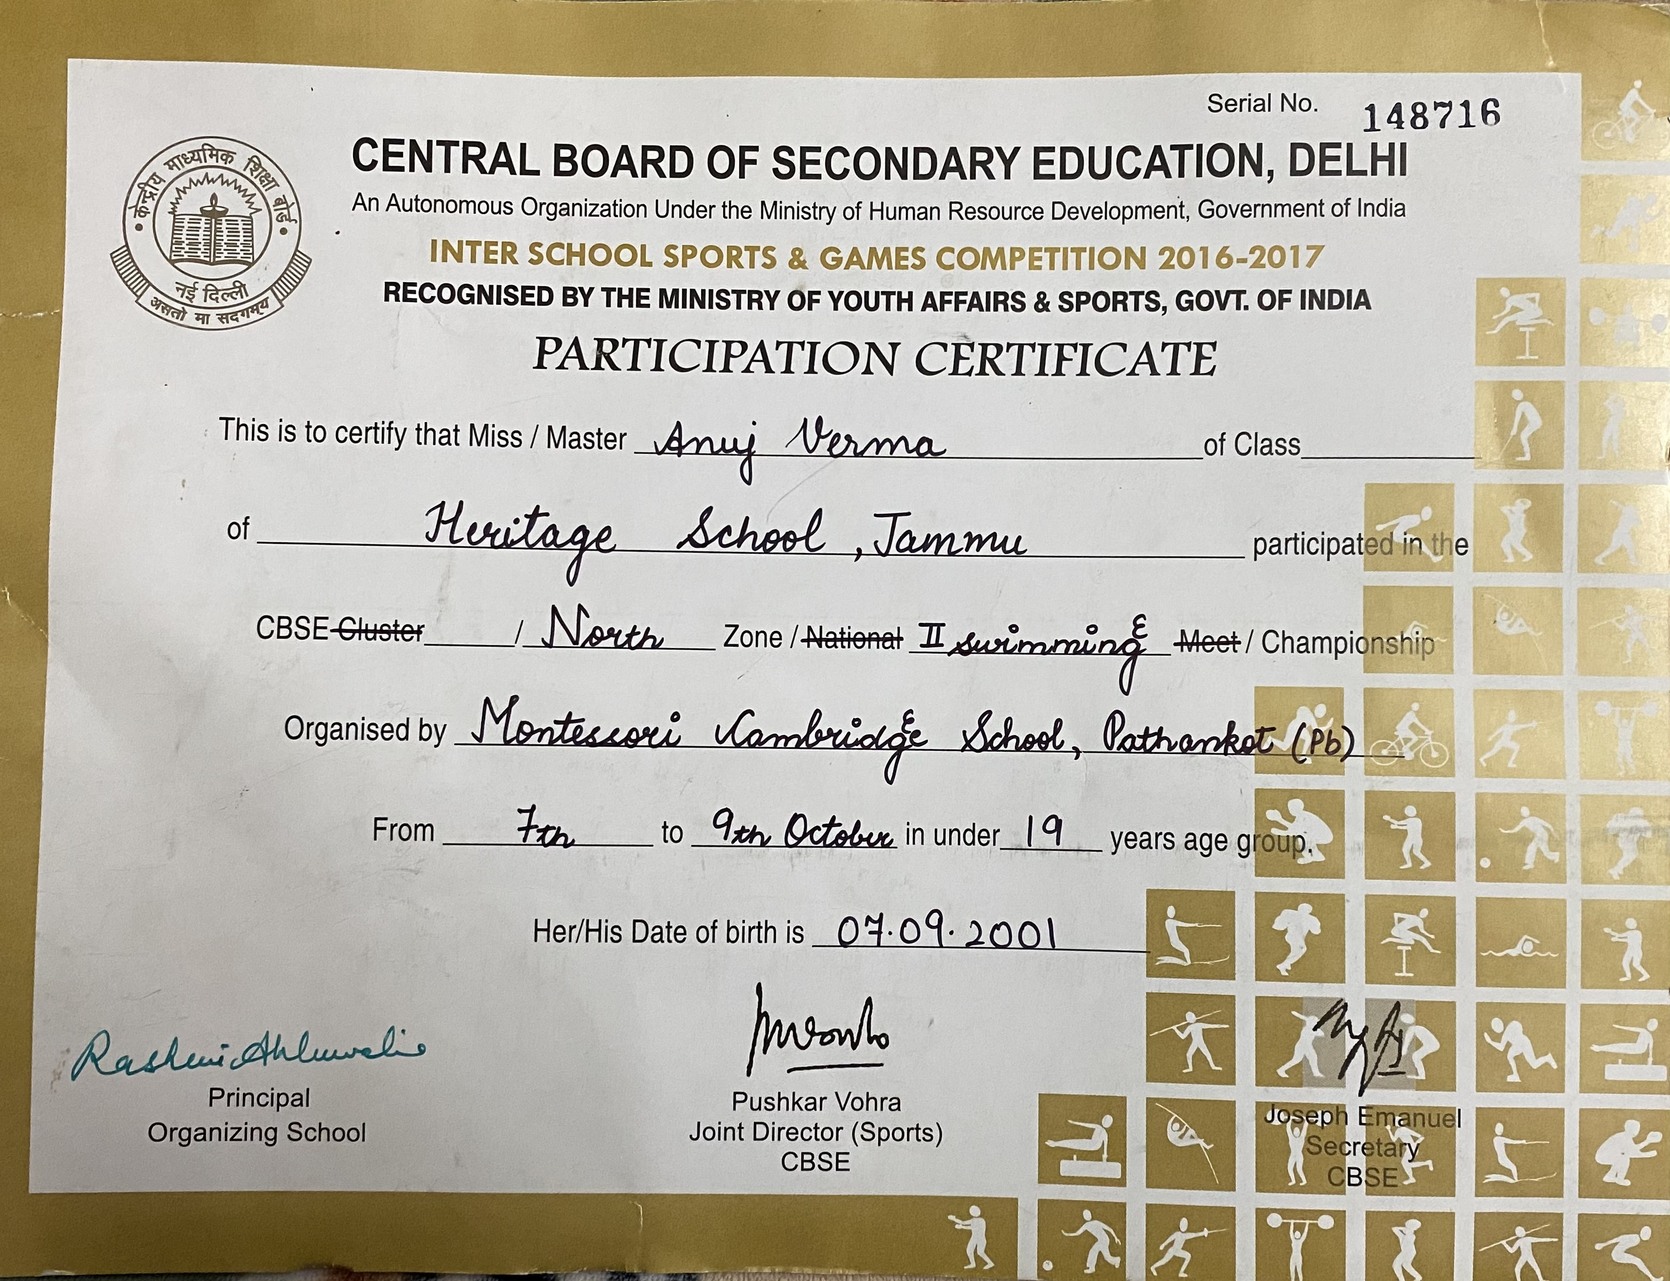 Serial No. 148716
केन्द्रीय माध्यमिक शिक्षा बोर्ड
नई दिल्ली
असतो मा सदगमय
CENTRAL BOARD OF SECONDARY EDUCATION, DELHI
An Autonomous Organization Under the Ministry of Human Resource Development, Government of India
INTER SCHOOL SPORTS & GAMES COMPETITION 2016-2017
RECOGNISED BY THE MINISTRY OF YOUTH AFFAIRS & SPORTS, GOVT. OF INDIA
PARTICIPATION CERTIFICATE
This is to certify that Miss / Master Anuj Verma of Class
of Heritage School, Jammu participated in the
CBSE Cluster / North Zone / National II swimming Meet / Championship
Organised by Montessori Cambridge School, Pathankot (Pb)
From 7th to 9th October in under 19 years age group.
Her/His Date of birth is 07.09.2001
Rashmi Ahluwalia
Principal
Organizing School
Pushkar Vohra
Joint Director (Sports)
CBSE
Joseph Emanuel
Secretary
CBSE